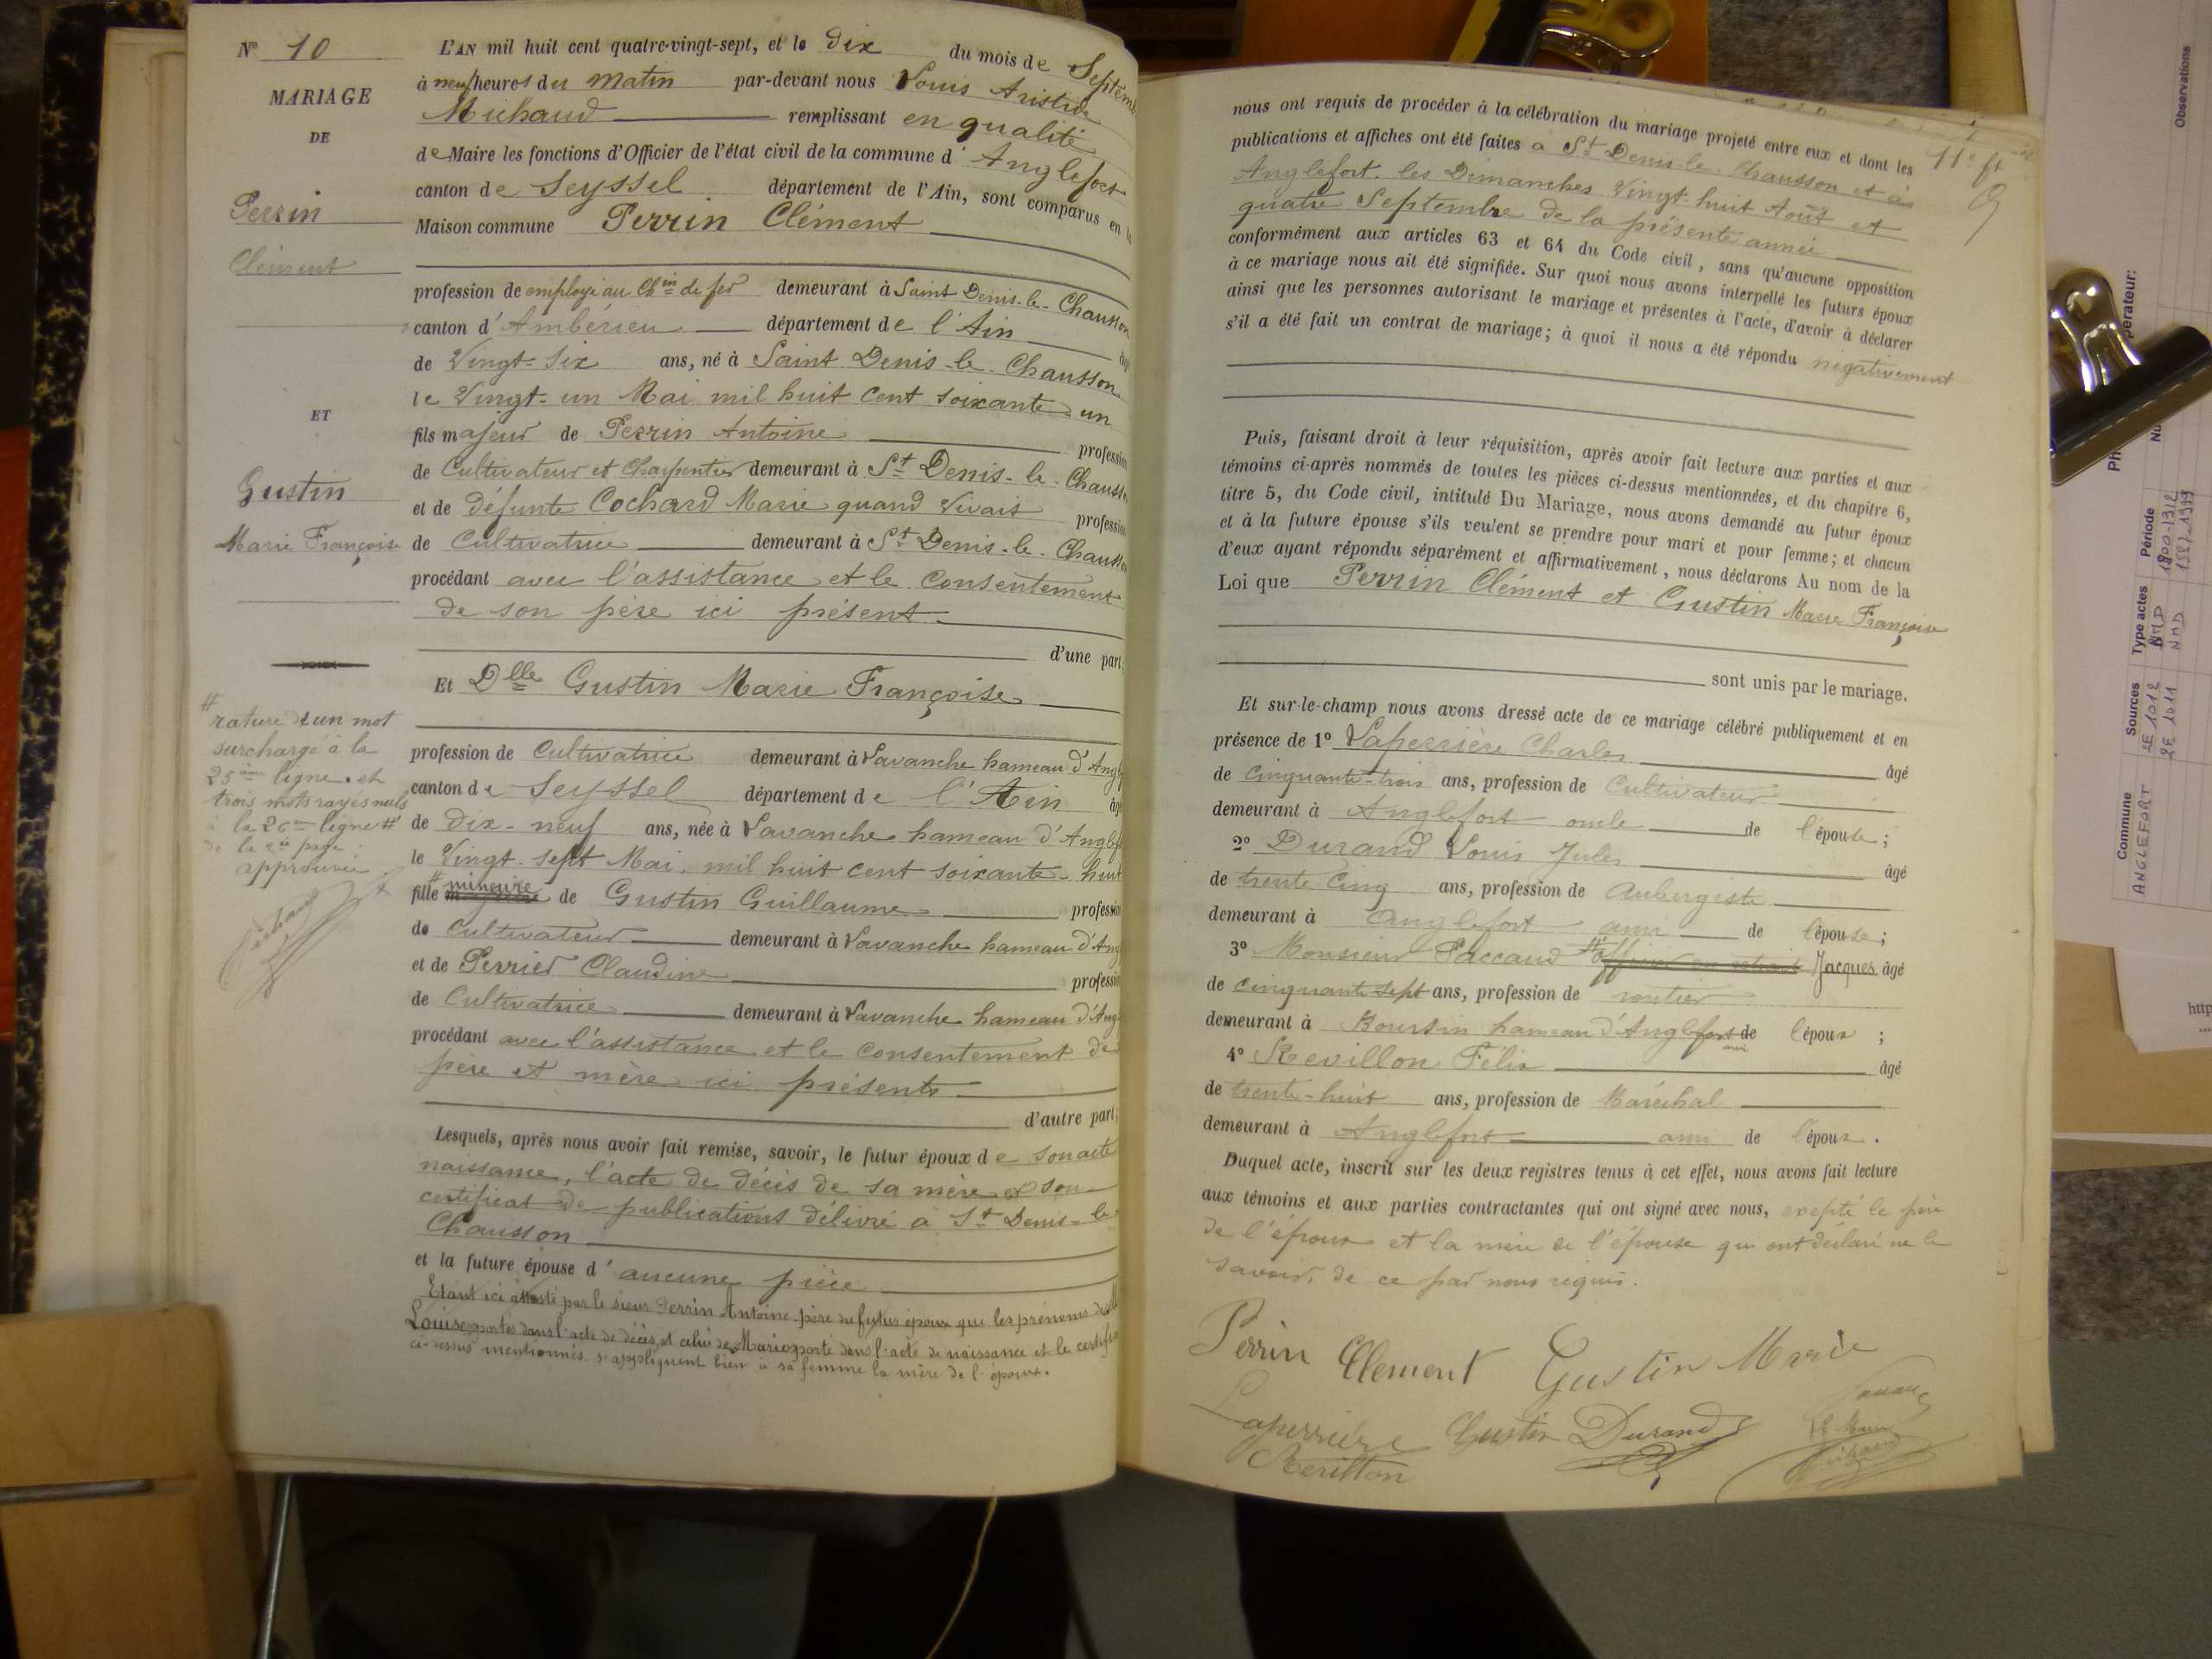 N° 10
MARIAGE
DE
Perrin
Clément
ET
Gustin
Marie Françoise
# rature d'un mot
surchargé à la
25ème ligne. et
trois mots rayés nuls
à la 26me ligne #'
de la 2è page
approuvée
Michaud
L'AN mil huit cent quatre-vingt-sept, et le dix du mois de Septembre
à neuf heures du matin par-devant nous Louis Aristide
Michaud remplissant en qualité
de Maire les fonctions d'Officier de l'état civil de la commune d'Anglefort
canton de Seyssel département de l'Ain, sont comparus en la
Maison commune Perrin Clément
profession de employé au Chin de fer demeurant à Saint Denis-le-Chausson
canton d'Ambérieu département de l'Ain âgé
de Vingt-six ans, né à Saint Denis-le-Chausson
le Vingt-un Mai mil huit cent soixante un
fils majeur de Perrin Antoine profession
de Cultivateur et Charpentier demeurant à St Denis-le-Chausson
et de défunte Cochard Marie quand Vivait profession
de Cultivatrice demeurant à St Denis-le-Chausson
procédant avec l'assistance et le Consentement
de son père ici présent
d'une part,
Et Dlle Gustin Marie Françoise
profession de Cultivatrice demeurant à Lavanche hameau d'Angl
canton de Seyssel département de l'Ain âgé
de dix-neuf ans, née à Lavanche hameau d'Anglef
le Vingt-sept Mai, mil huit cent soixante-huit
fille # mineure de Gustin Guillaume profession
de Cultivateur demeurant à Lavanche hameau d'Ang
et de Perrier Claudine profession
de Cultivatrice demeurant à Lavanche hameau d'Ang
procédant avec l'assistance et le Consentement de
père et mère ici présents
d'autre part;
Lesquels, après nous avoir fait remise, savoir, le futur époux de son acte
naissance, l'acte de décès de sa mère et son
certificat de publications délivré à St Denis-le-
Chausson
et la future épouse d'aucune pièce
Etant ici attesté par le sieur Perrin Antoine père du futur époux que les prénoms de
Louise portés dans l'acte de décès et celui de Marie porté dans l'acte de naissance et le certifi
ci-dessus mentionnés s'appliquent bien à sa femme la mère de l'époux.
11e ft
nous ont requis de procéder à la célébration du mariage projeté entre eux et dont les
publications et affiches ont été faites à St Denis-le-Chausson et à
Anglefort. les Dimanches Vingt-huit Août et
quatre Septembre de la présente année
conformément aux articles 63 et 64 du Code civil, sans qu'aucune opposition
à ce mariage nous ait été signifiée. Sur quoi nous avons interpellé les futurs époux
ainsi que les personnes autorisant le mariage et présentes à l'acte, d'avoir à déclarer
s'il a été fait un contrat de mariage; à quoi il nous a été répondu négativement
Puis, faisant droit à leur réquisition, après avoir fait lecture aux parties et aux
témoins ci-après nommés de toutes les pièces ci-dessus mentionnées, et du chapitre 6,
titre 5, du Code civil, intitulé Du Mariage, nous avons demandé au futur époux
et à la future épouse s'ils veulent se prendre pour mari et pour femme; et chacun
d'eux ayant répondu séparément et affirmativement, nous déclarons Au nom de la
Loi que Perrin Clément et Gustin Marie Françoise
sont unis par le mariage.
Et sur-le-champ nous avons dressé acte de ce mariage célébré publiquement et en
présence de 1° Laperrière Charles âgé
de cinquante-trois ans, profession de Cultivateur
demeurant à Anglefort oncle de l'épouse;
2° Durand Louis Jules âgé
de trente cinq ans, profession de Aubergiste
demeurant à Anglefort ami de l'épouse;
3° Monsieur Paccaud #' officier en retraite Jacques âgé
de cinquante-sept ans, profession de rentier
demeurant à Boursin hameau d'Anglefort ami de l'époux;
4° Revillon Félix âgé
de trente-huit ans, profession de Maréchal
demeurant à Anglefort ami de l'époux.
Duquel acte, inscrit sur les deux registres tenus à cet effet, nous avons fait lecture
aux témoins et aux parties contractantes qui ont signé avec nous, exepté le père
de l'époux et la mère de l'épouse qui ont déclaré ne le
savoir, de ce par nous requis.
Perrin Clément Gustin Marie
Laperrière Gustin Durand
Revillon
Le Maire
Michaud
Observations
Commune Sources Type actes Période
ANGLEFORT 2E 1012 NMD
2E 1011 NMD
http